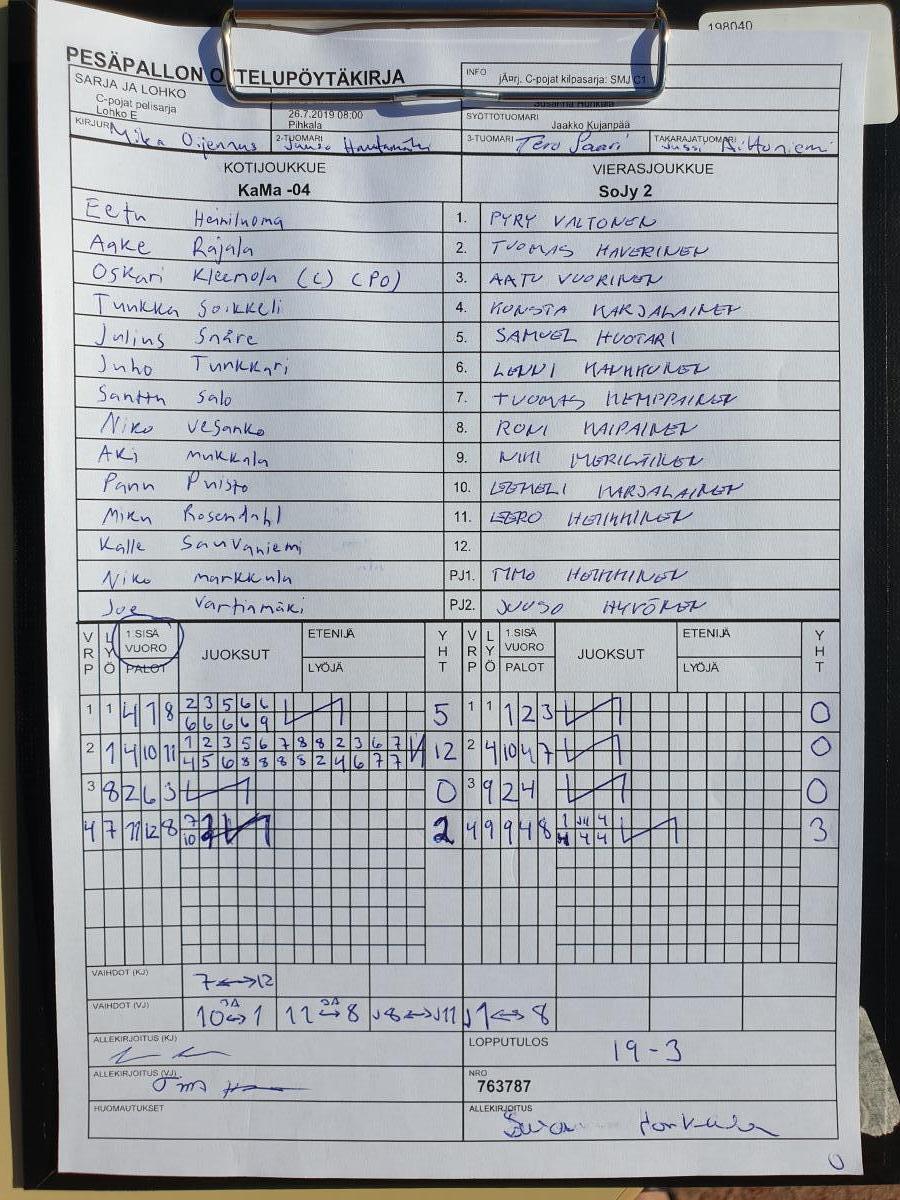 198040
PESÄPALLON OTTELUPÖYTÄKIRJA
SARJA JA LOHKO
C-pojat pelisarja
Lohko E
26.7.2019 08:00
Pihkala
INFO jÄ¤rj. C-pojat kilpasarja: SMJ C1
SYÖTTÖTUOMARI
Jaakko Kujanpää
KIRJURI Mika Ojennus 2-TUOMARI Juuso Hautamäki 3-TUOMARI Tero Saari TAKARAJATUOMARI Jussi Aittoniemi
KOTIJOUKKUE VIERASJOUKKUE
KaMa -04 SoJy 2
Eetu Heiniluoma 1. PYRY VALTONEN
Aake Rajala 2. TUOMAS HAVERINEN
Oskari Kleemola (C) (PO) 3. AATU VUORINEN
Tuukka Soikkeli 4. KONSTA KARJALAINEN
Julius Snåre 5. SAMUEL HUOTARI
Juho Tunkkari 6. LENNI KAUKKONEN
Santtu Salo 7. TUOMAS KEMPPAINEN
Niko Vesanko 8. RONI KAIPAINEN
Aki Mukkala 9. NIKI MERILÄINEN
Panu Puisto 10. LEEVELI KARJALAINEN
Miku Rosendahl 11. EERO HEIKKINEN
Kalle Sauvaniemi 12.
Niko Markkula PJ1. TIMO HEIKKINEN
Joe Vartiamäki PJ2. JUUSO HYVÖNEN
VRP LYÖ 1.SISÄ VUORO PALOT JUOKSUT ETENIJÄ LYÖJÄ YHT VRP LYÖ 1.SISÄ VUORO PALOT JUOKSUT ETENIJÄ LYÖJÄ YHT
1 1 4 7 8 2 3 5 6 6 5 1 1 1 2 3 0
6 6 6 6 9
2 1 4 10 11 1 2 3 5 6 7 8 8 2 3 6 7 12 2 4 10 4 7 0
4 5 6 8 8 8 8 2 4 6 7 7
3 8 2 6 3 0 3 9 2 4 0
4 7 11 12 8 7 2 4 9 9 4 8 1 4 3
10 4 4
VAIHDOT (KJ) 7 ↔ 12
VAIHDOT (VJ) 10 ↔ 1 11 ↔ 8 J8 ↔ J11 J1 ↔ 8
ALLEKIRJOITUS (KJ) LOPPUTULOS 19 - 3
ALLEKIRJOITUS (VJ) NRO
763787
HUOMAUTUKSET ALLEKIRJOITUS